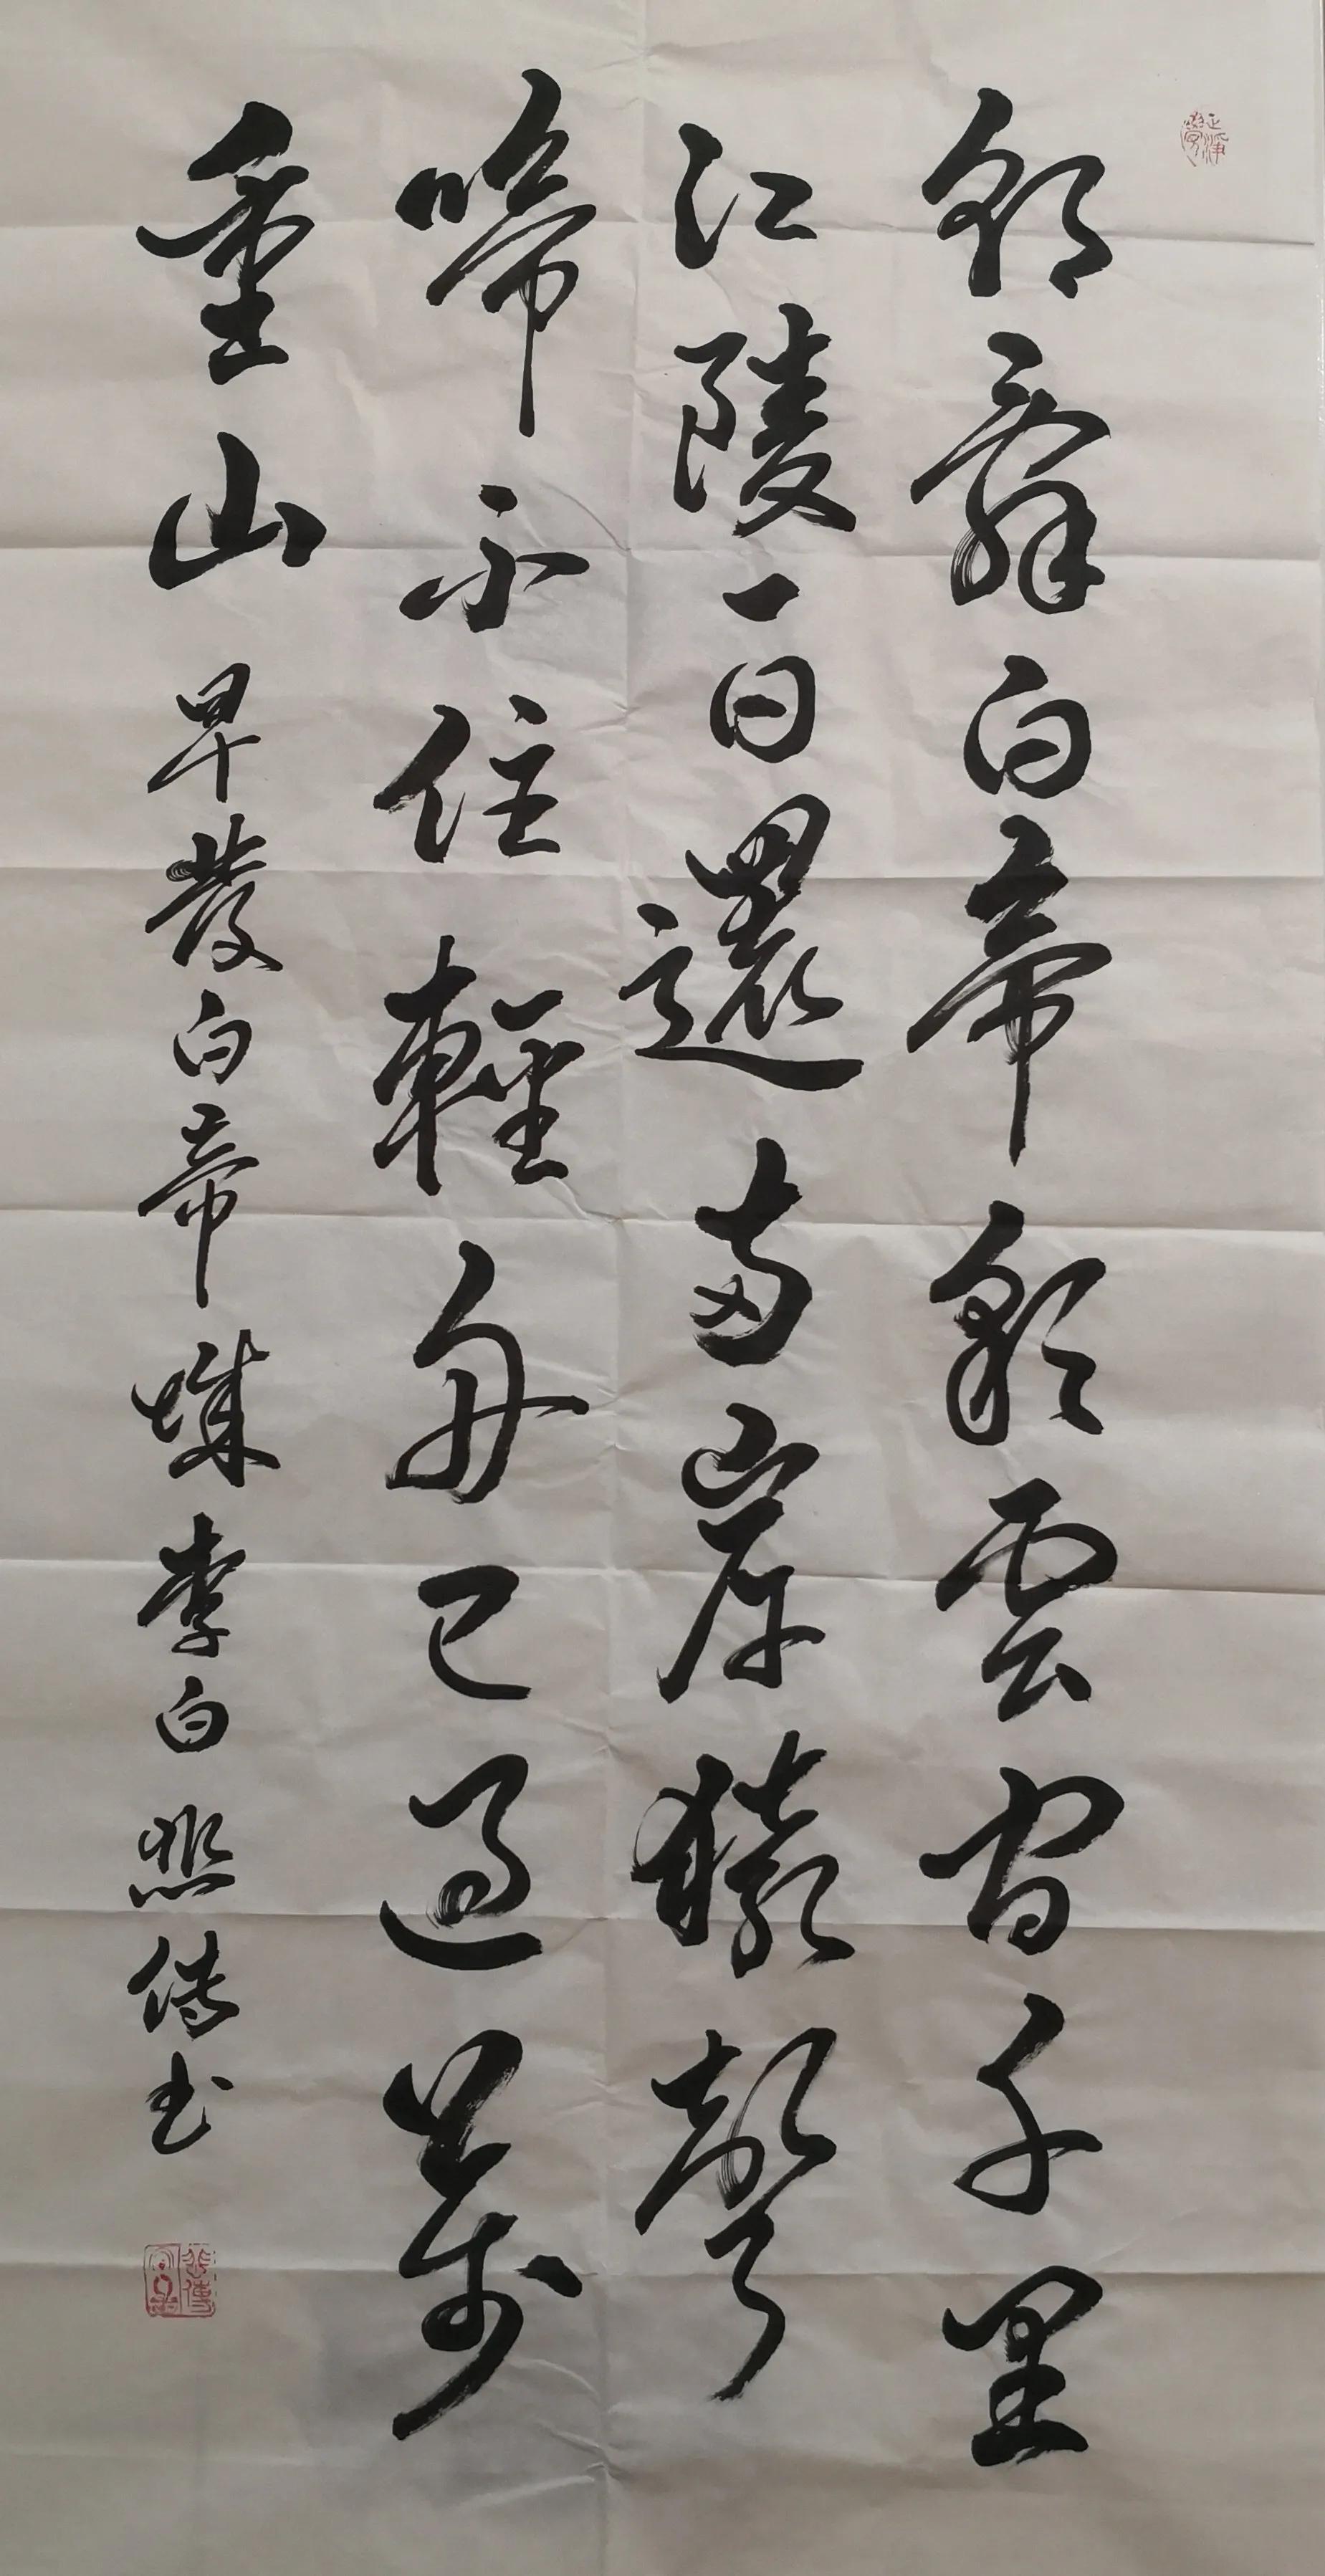 朝辭白帝彩雲間千里
江陵一日還兩岸猿聲
啼不住輕舟已過萬
重山 早發白帝城李白 熙傳书